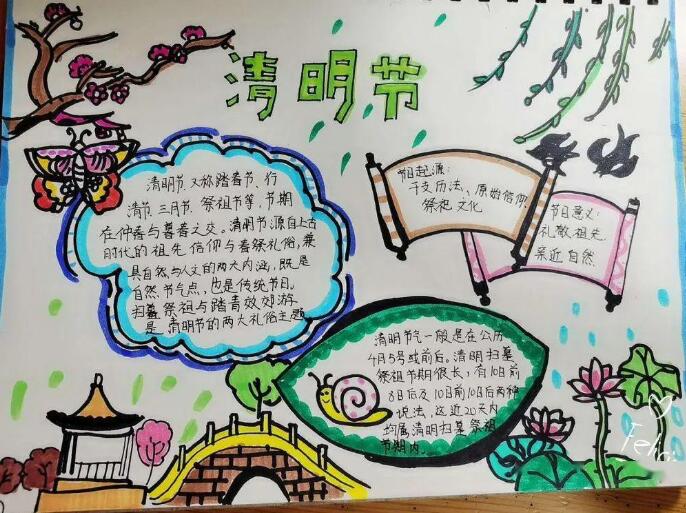 清明节
清明节,又称踏春节、行
清节、三月节、祭祖节等,节期
在仲春与暮春之交。清明节源自上古
时代的祖先信仰与春祭礼俗,兼
具自然与人文的两大内涵,既是
自然节气点,也是传统节日。
扫墓祭祖与踏青效郊游
是清明节的两大礼俗主题
节日起源:
干支历法、原始信仰、
祭祖文化
节日意义:
礼敬祖先
亲近自然
清明节气一般是在公历
4月5号或前后。清明扫墓
祭祖节期很长,有10日前
8日后及10日前10日后两种
说法,这近20天内
均属清明扫墓祭祖
节期内。